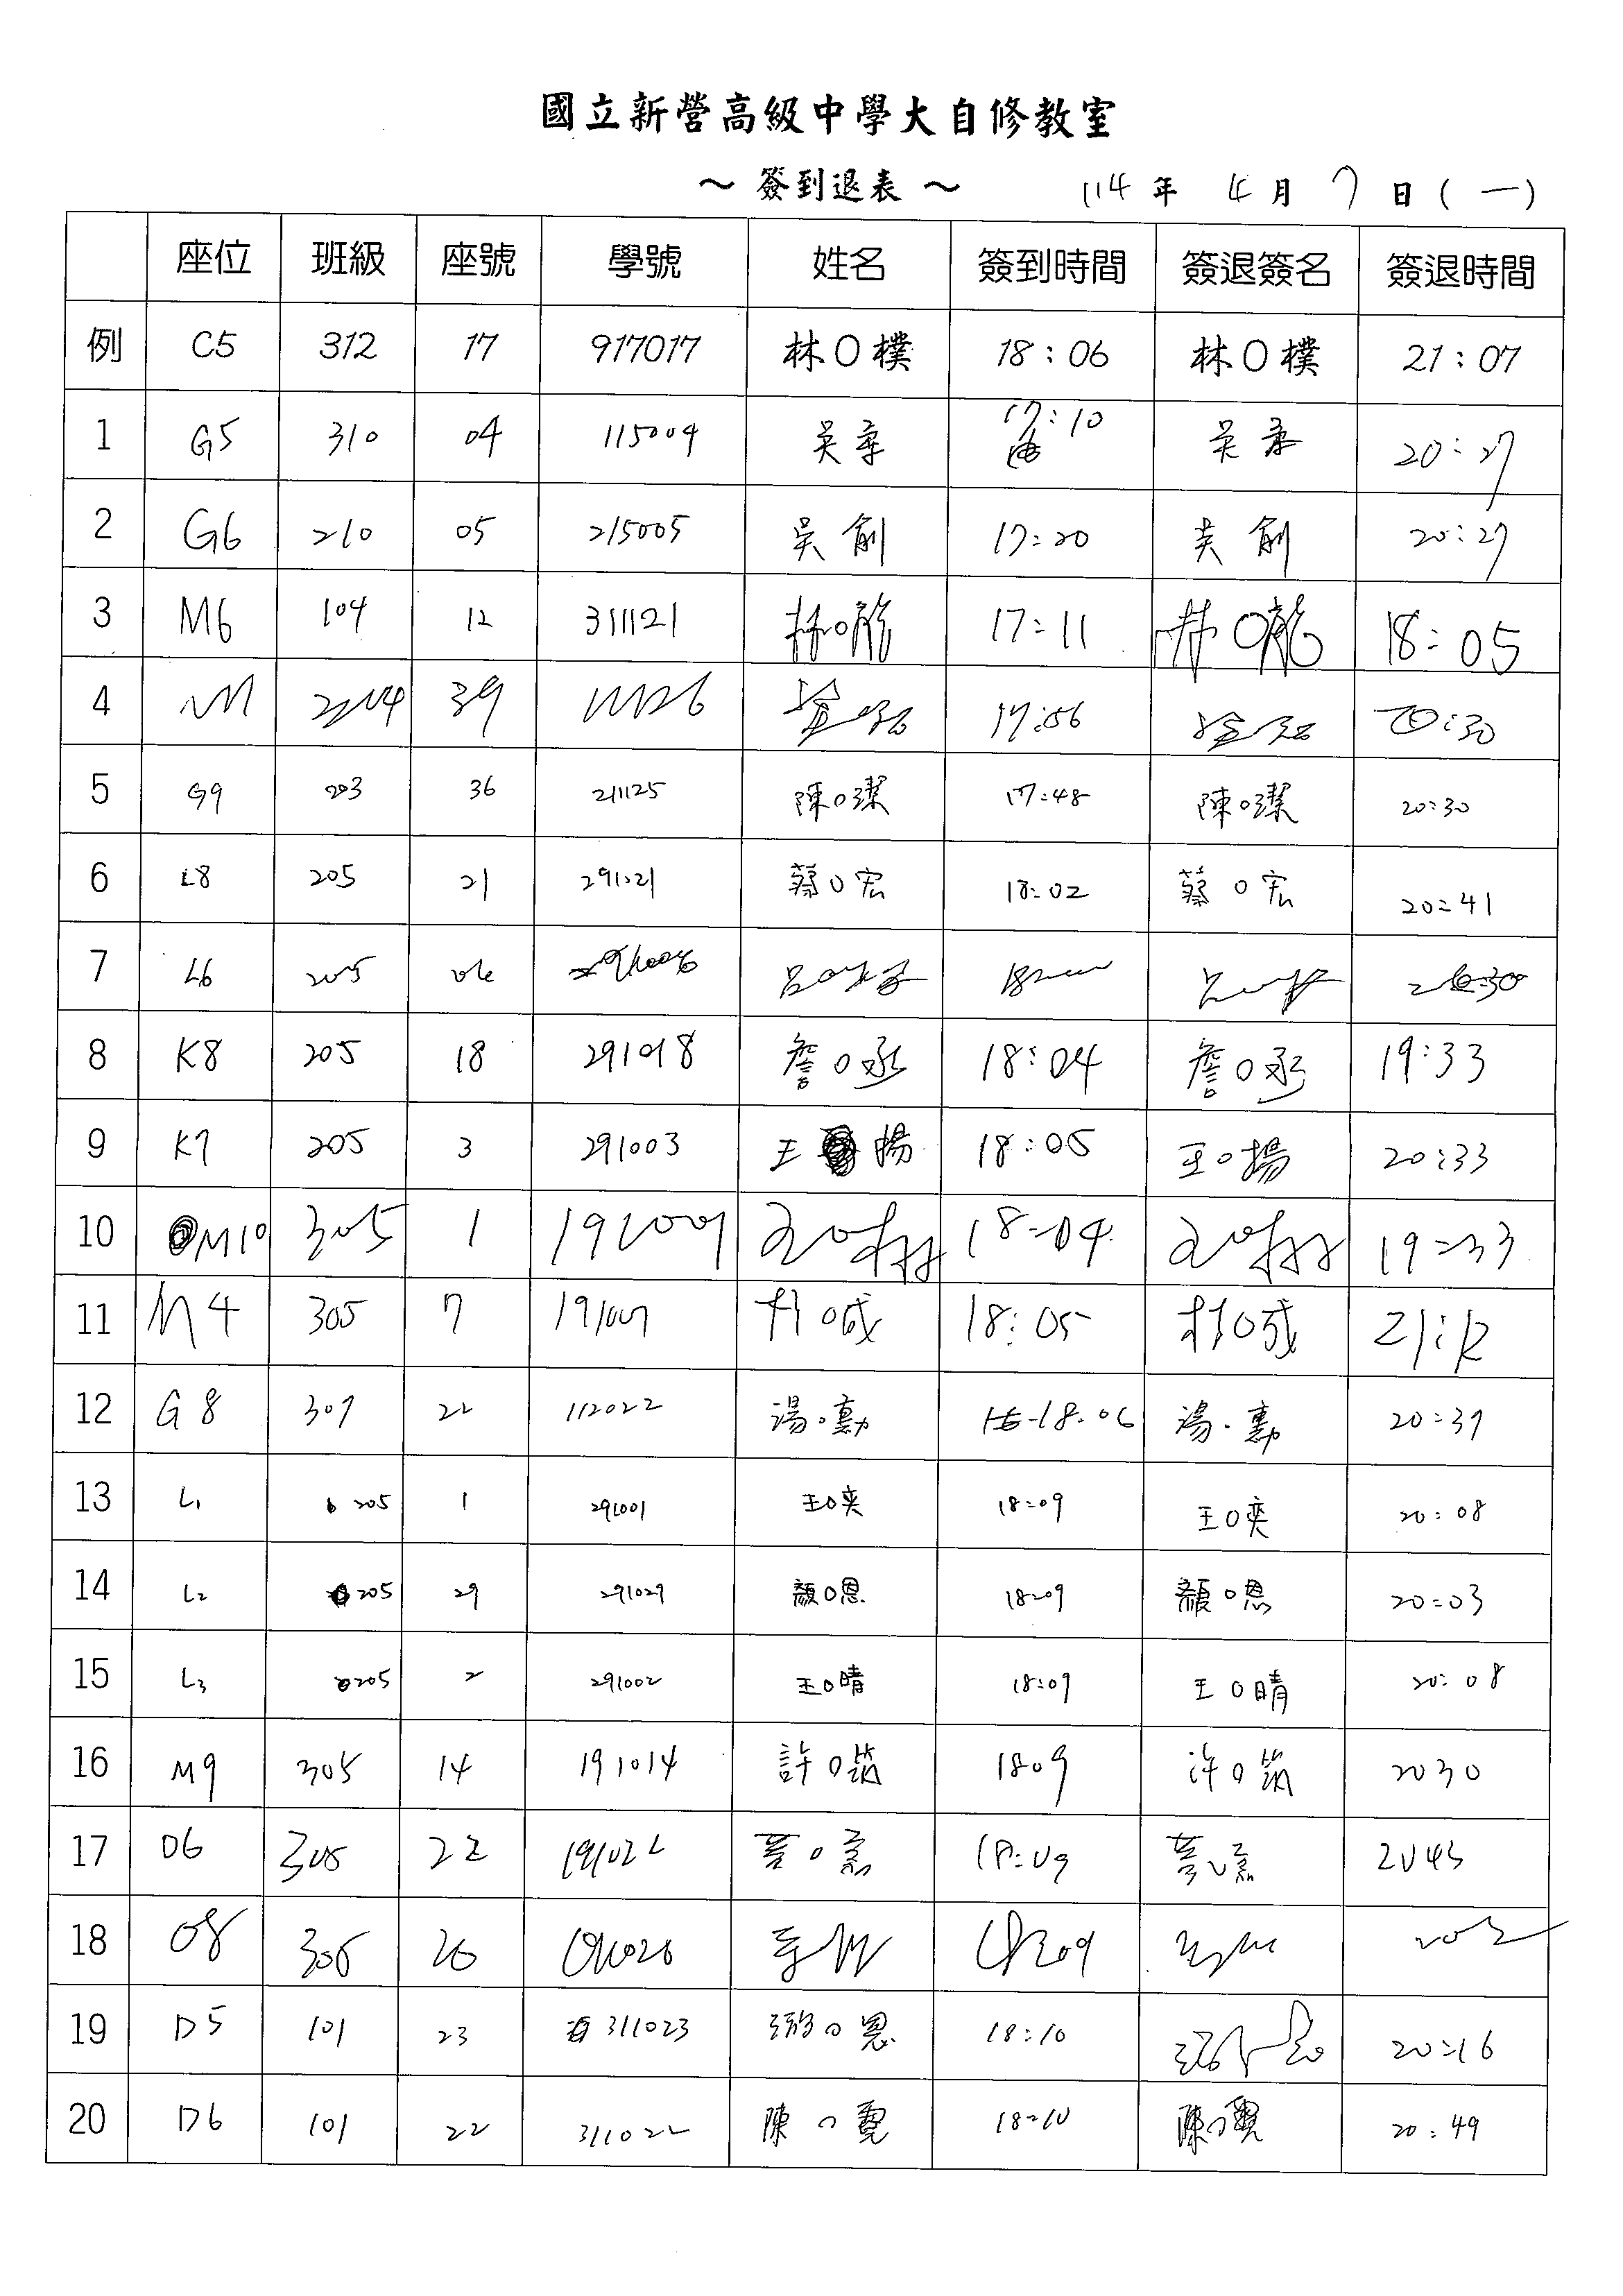 國立新營高級中學大自修教室
～簽到退表～ 114年 4月 7日(一)
座位 班級 座號 學號 姓名 簽到時間 簽退簽名 簽退時間
例 C5 312 17 917017 林O樸 18:06 林O樸 21:07
1 G5 310 04 115004 吳 17:10 吳 20:27
2 G6 210 05 215005 吳 創 17:20 吳 創 20:27
3 M6 104 12 311121 林O龍 17:11 林O龍 18:05
4 39 17:56 20:30
5 G9 203 36 211125 陳O潔 17:48 陳O潔 20:30
6 L8 205 21 291021 蔡O宏 18:02 蔡O宏 20:41
7 L6 205 06 291006 呂O
8 K8 205 18 291018 詹O丞 18:04 詹O丞 19:33
9 K7 205 3 291003 王 揚 18:05 王O揚 20:33
10 M10 305 1 191001 18:04 19:33
11 M4 305 7 191007 18:05 21:12
12 G8 307 22 112022 湯O勳 18:06 湯O勳 20:37
13 L1 205 1 291001 王O奕 18:09 王O奕 20:08
14 L2 205 29 291029 顏O恩 18:09 顏O恩 20:03
15 L3 205 2 291002 王O晴 18:09 王O晴 20:08
16 M9 305 14 191014 許O筑 1809 許O筑 2030
17 O6 305 22 191022 18:09 2043
18 O8 305 20 191020 18:09
19 D5 101 23 311023 O恩 18:10 20:16
20 D6 101 22 311022 陳O霓 18:10 陳O霓 20:49